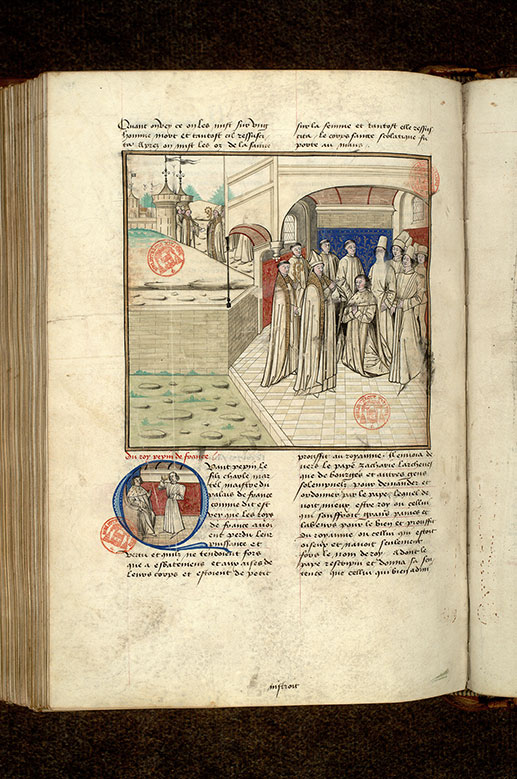 Quant on vey ce on les mist sur ung
homme mort et tantost cil ressusci
ta Aprez on mist les os de la saincte
sur la femme et tantost elle ressus
cita le corps saincte scolastique fu
porte au mans
Du roy pepin de france
Quant pepin le
filz charle mar
tel maistre du
palais de france
comme dit est
vey que les roys
de france avoi
ent perdu leur
puissance et
vertu et quilz ne tendoient fors
que a esbatemens et aux aises de
leurs corps et estoient de petit
prouffit au royaume Il envoia de
vers le pape zacharie larcheves
que de bourges et autres gens
solempnelz pour demander et
ordonner par le pape lequel de
voit mieux estre roy ou cellui
qui souffroit grans paines et
labeurs pour le bien et prouffit
du royaume ou cellui qui estoit
oiseux et navoit seulement
fors le nom de roy Adont le
pape rescripvi et donna sa sen
tence que cellui qui bien admi
nistroit